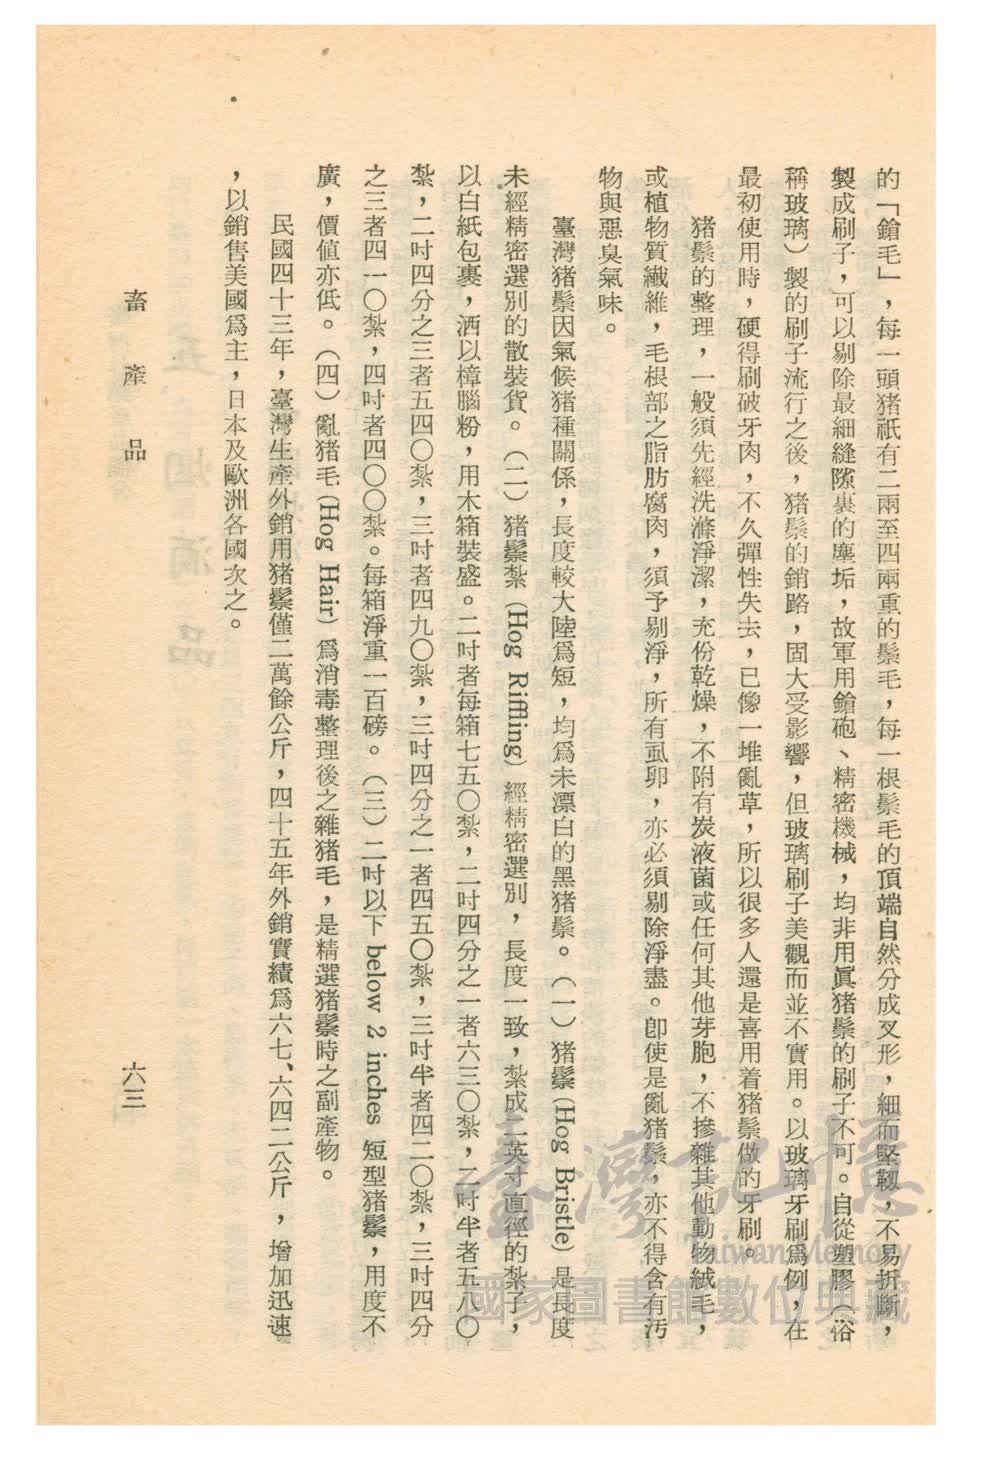 的「鎗毛」，每一頭猪祇有二兩至四兩重的鬃毛，每一根鬃毛的頂端自然分成叉形，細而堅靱，不易折斷，
製成刷子，可以剔除最細縫隙裏的塵垢，故軍用鎗砲、精密機械，均非用眞猪鬃的刷子不可。自從塑膠（俗
稱玻璃）製的刷子流行之後，猪鬃的銷路，固大受影響，但玻璃刷子美觀而並不實用。以玻璃牙刷爲例，在
最初使用時，硬得刷破牙肉，不久彈性失去，已像一堆亂草，所以很多人還是喜用着猪鬃做的牙刷。
猪鬃的整理，一般須先經洗滌淨潔，充份乾燥，不附有炭液菌或任何其他芽胞，不摻雜其他動物絨毛，
或植物質纖維，毛根部之脂肪腐肉，須予剔淨，所有虱卵，亦必須剔除淨盡。卽使是亂猪鬃，亦不得含有汚
物與惡臭氣味。
臺灣猪鬃因氣候猪種關係，長度較大陸爲短，均爲未漂白的黑猪鬃。（一）猪鬃(Hog Bristle)是長度
未經精密選別的散裝貨。（二）猪鬃紮（Hog Riffling）經精密選別，長度一致，紮成二英寸直徑的紮子，
以白紙包裹，洒以樟腦粉，用木箱裝盛。二吋者每箱七五〇紮，二吋四分之一者六三〇紮，二吋半者五八〇
紮，二吋四分之三者五四〇紮，三吋者四九〇紮，三吋四分之一者四五〇紮，三吋半者四二〇紮，三吋四分
之三者四一〇紮，四吋者四〇〇紮。每箱淨重一百磅。（三）二吋以下 below 2 inches 短型猪鬃，用度不
廣，價値亦低。（四）亂猪毛(Hog Hair）爲消毒整理後之雜猪毛，是精選猪鬃時之副產物。
民國四十三年，臺灣生產外銷用猪鬃僅二萬餘公斤，四十五年外銷實績爲六七、六四二公斤，增加迅速
，以銷售美國爲主，日本及歐洲各國次之。
畜產品
六三
臺灣記憶
Taiwan Memory
國家圖書館數位典藏